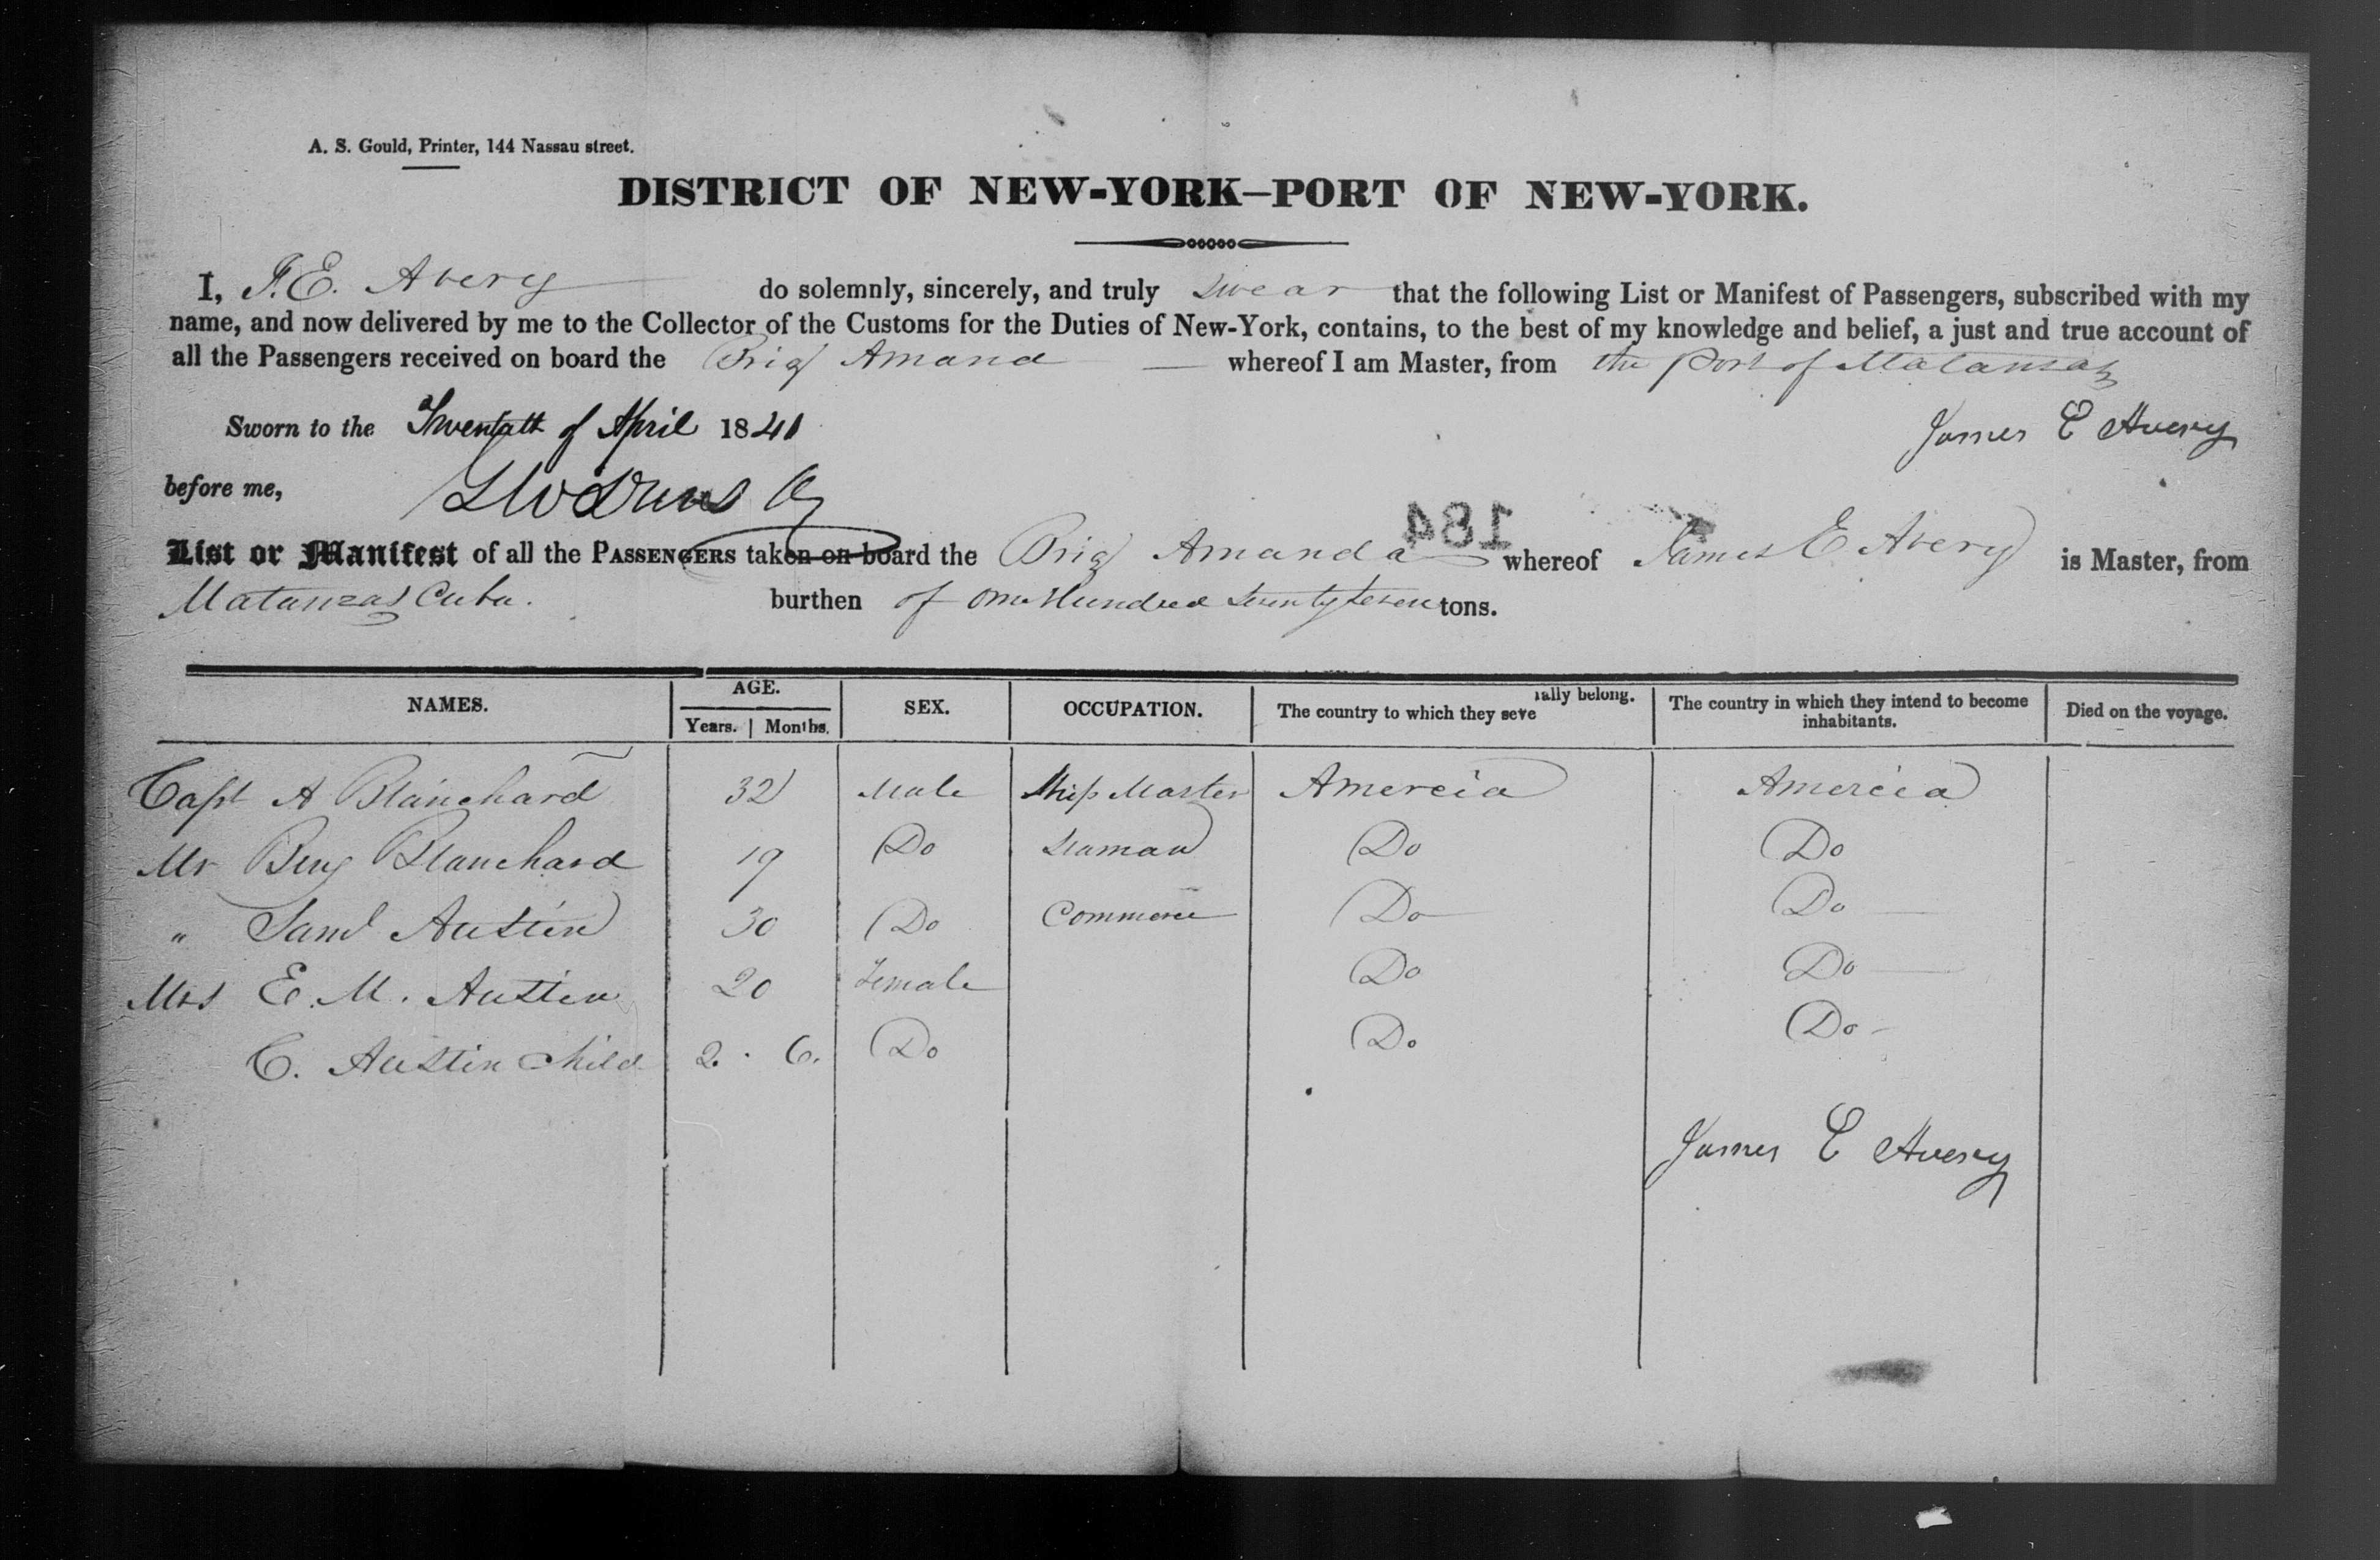 A. S. Gould, Printer, 144 Nassau street.
DISTRICT OF NEW-YORK—PORT OF NEW-YORK.
I, J. E. Avery do solemnly, sincerely, and truly swear that the following List or Manifest of Passengers, subscribed with my
name, and now delivered by me to the Collector of the Customs for the Duties of New-York, contains, to the best of my knowledge and belief, a just and true account of
all the Passengers received on board the Brig Amand whereof I am Master, from the Port of Matansas
Sworn to the of April 1841
James E Avery
before me,
184
List or Manifest of all the PASSENGERS taken on board the Brig Amanda whereof James E Avery is Master, from
Matanzas Cuba. burthen of One Hundred Seventy seven tons.
NAMES. AGE. Years. Months. SEX. OCCUPATION. The country to which they severally belong. The country in which they intend to become inhabitants. Died on the voyage.
Capt A Blanchard 32 Male Ship Master Amereia Amereia
Mr Benj Blanchard 19 Do Seaman Do Do
" Saml Austin 30 Do Commerce Do Do
Mrs E. M. Austin 20 Female Do Do
C. Austin Child 2. 6. Do Do Do
James E Avery